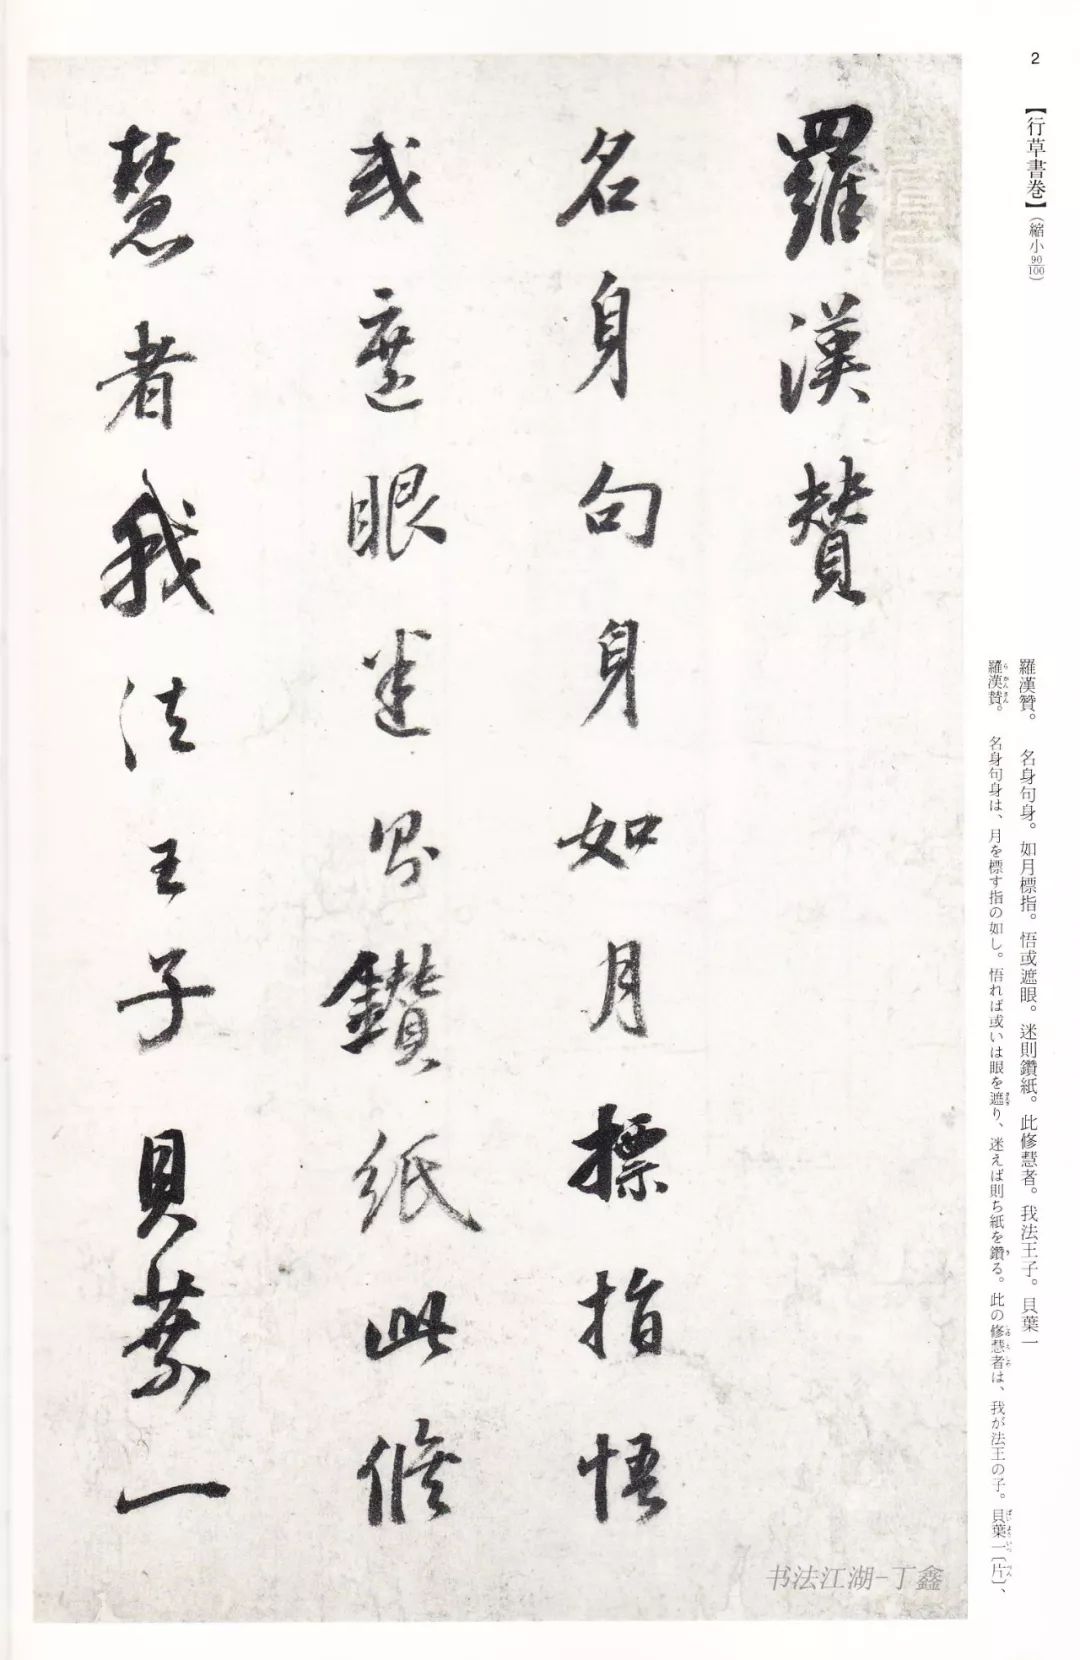 2
【行草書巻】(縮小90/100)
羅漢贊。 名身句身。如月標指。悟或遮眼。迷則鑽紙。此修慧者。我法王子。貝葉一
羅漢賛。 名身句身は、月を標す指の如し。悟れば或いは眼を遮り、迷えば則ち紙を鑽る。此の修慧者は、我が法王の子。貝葉一〔片〕、
羅漢賛
名身句身如月標指悟
或遮眼迷則鑽紙此修
慧者我法王子貝葉一
书法江湖-丁鑫